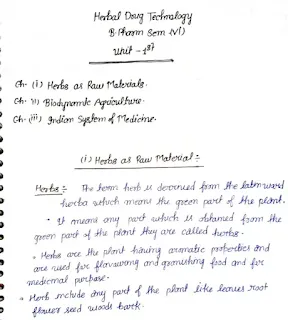 Herbal Drug Technology
B.Pharm Sem (VI)
Unit - 1st
Ch- (i) Herbs as Raw Materials.
Ch- ii) Biodynamic Agriculture.
Ch- (iii) Indian System of Medicine.
(i) Herbs as Raw Material :-
Herbs :- The term herb is devoured from the latin word
herba which means the green part of the plant.
• It means any part which is obtained from the
green part of the plant they are called herbs.
• Herbs are the plant having aromatic properties and
are used for flavouring and garnishing food and for
medicinal purpose.
• Herb include any part of the plant like leaves root
flower seed woods bark.